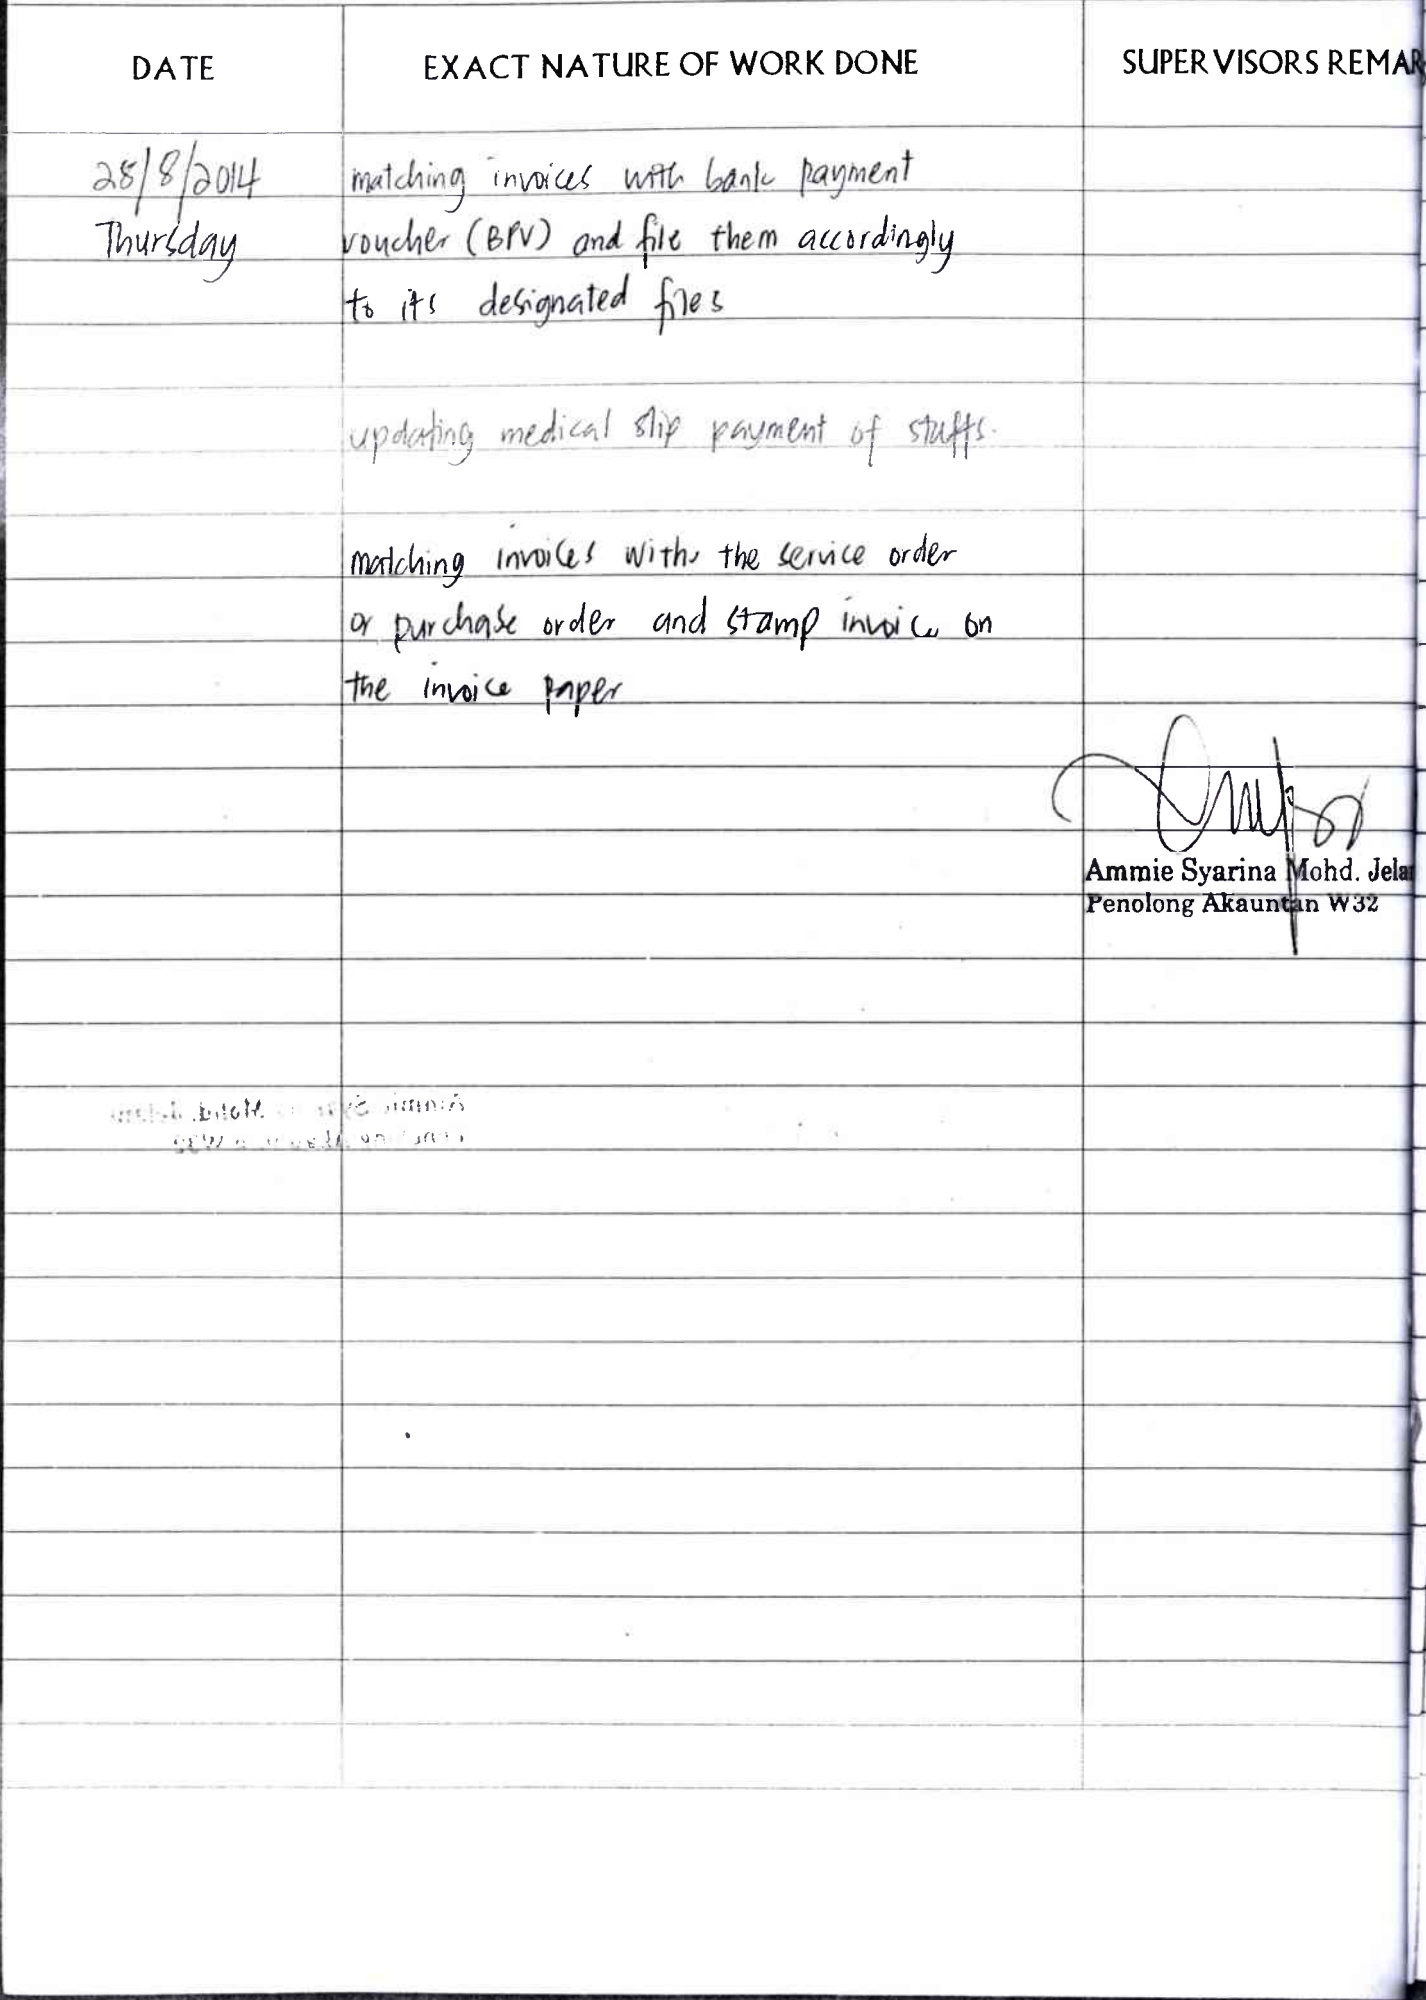 DATE EXACT NATURE OF WORK DONE SUPERVISORS REMAR
28/8/2014 matching invoices with bank payment
Thursday voucher (BPV) and file them accordingly
to its designated files
updating medical slip payment of stuffs.
matching invoices with the service order
or purchase order and stamp invoice on
the invoice paper
Ammie Syarina Mohd. Jela
Penolong Akauntan W32